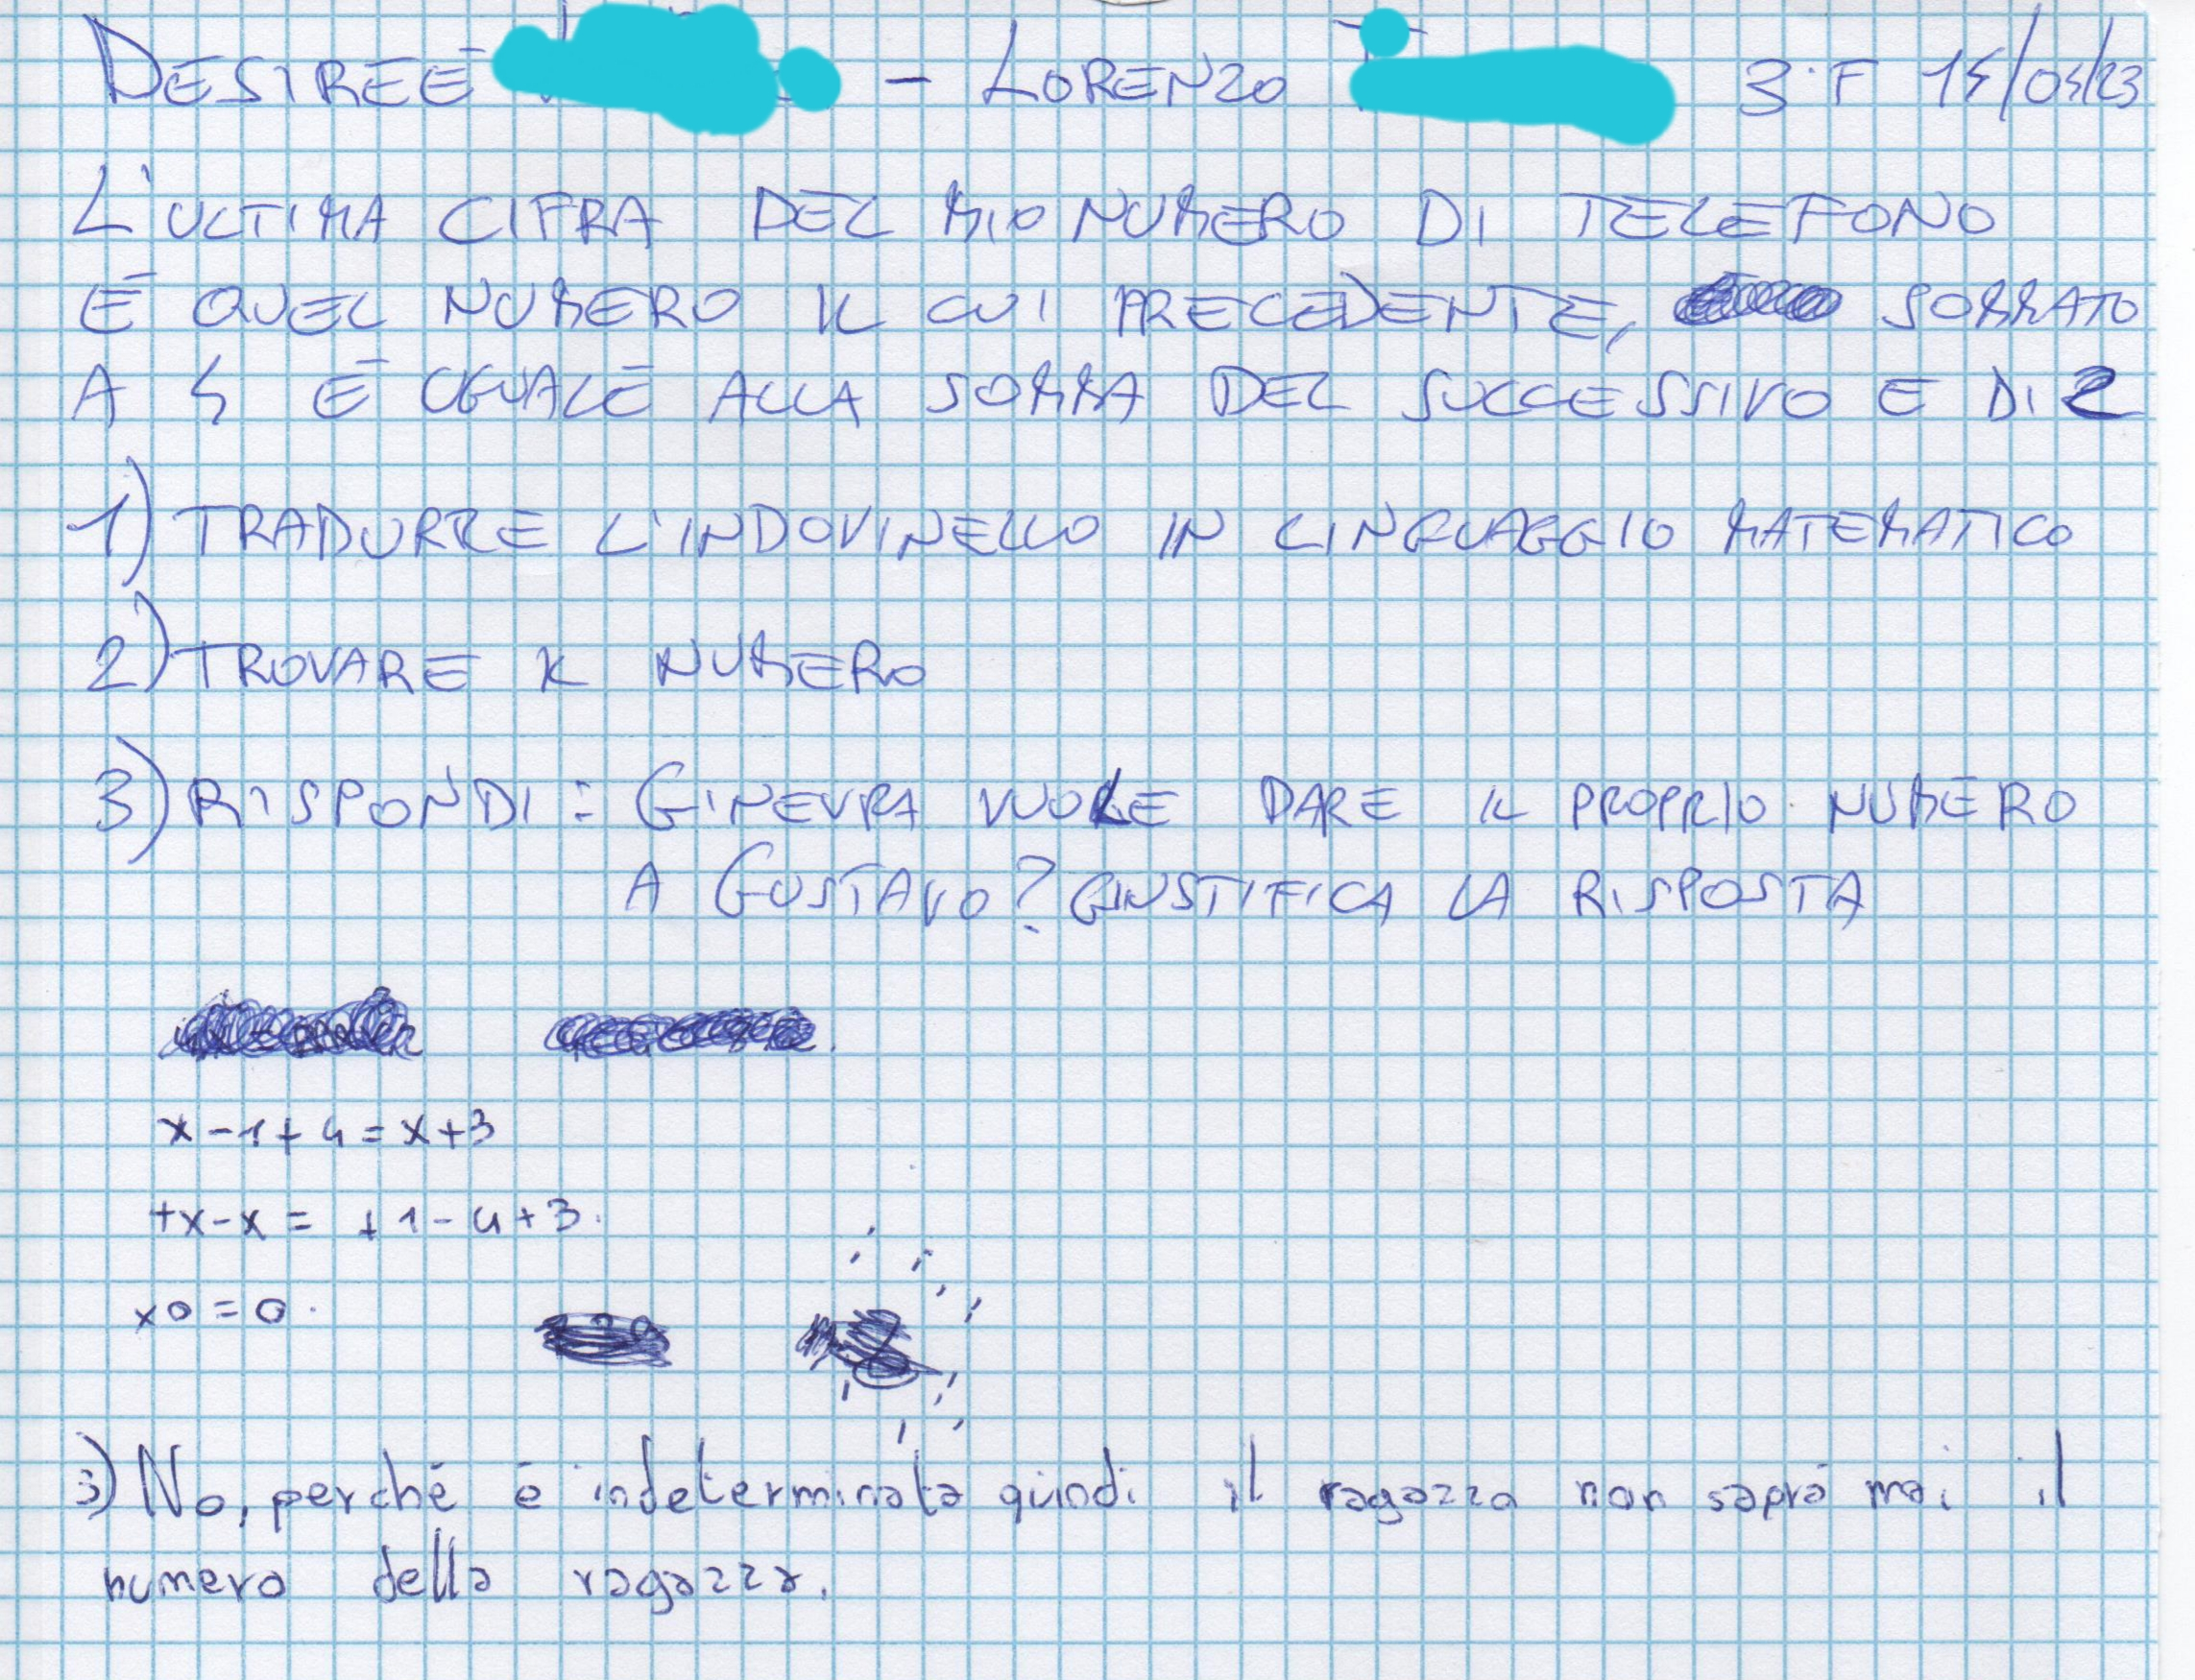 DESIREÉ - LORENZO 3°F 14/04/23
L'ULTIMA CIFRA DEL MIO NUMERO DI TELEFONO
É QUEL NUMERO IL CUI PRECEDENTE, SOMMATO
A 4 É UGUALE ALLA SOMMA DEL SUCCESSIVO E DI 2
1) TRADURRE L'INDOVINELLO IN LINGUAGGIO MATEMATICO
2) TROVARE IL NUMERO
3) RISPONDI: GINEVRA VUOLE DARE IL PROPRIO NUMERO
A GUSTAVO? GIUSTIFICA LA RISPOSTA
x-1+4=x+3
+x-x= +1-4+3.
x0=0.
3) No, perché é indeterminata quindi il ragazzo non saprá mai il
numero della ragazza.